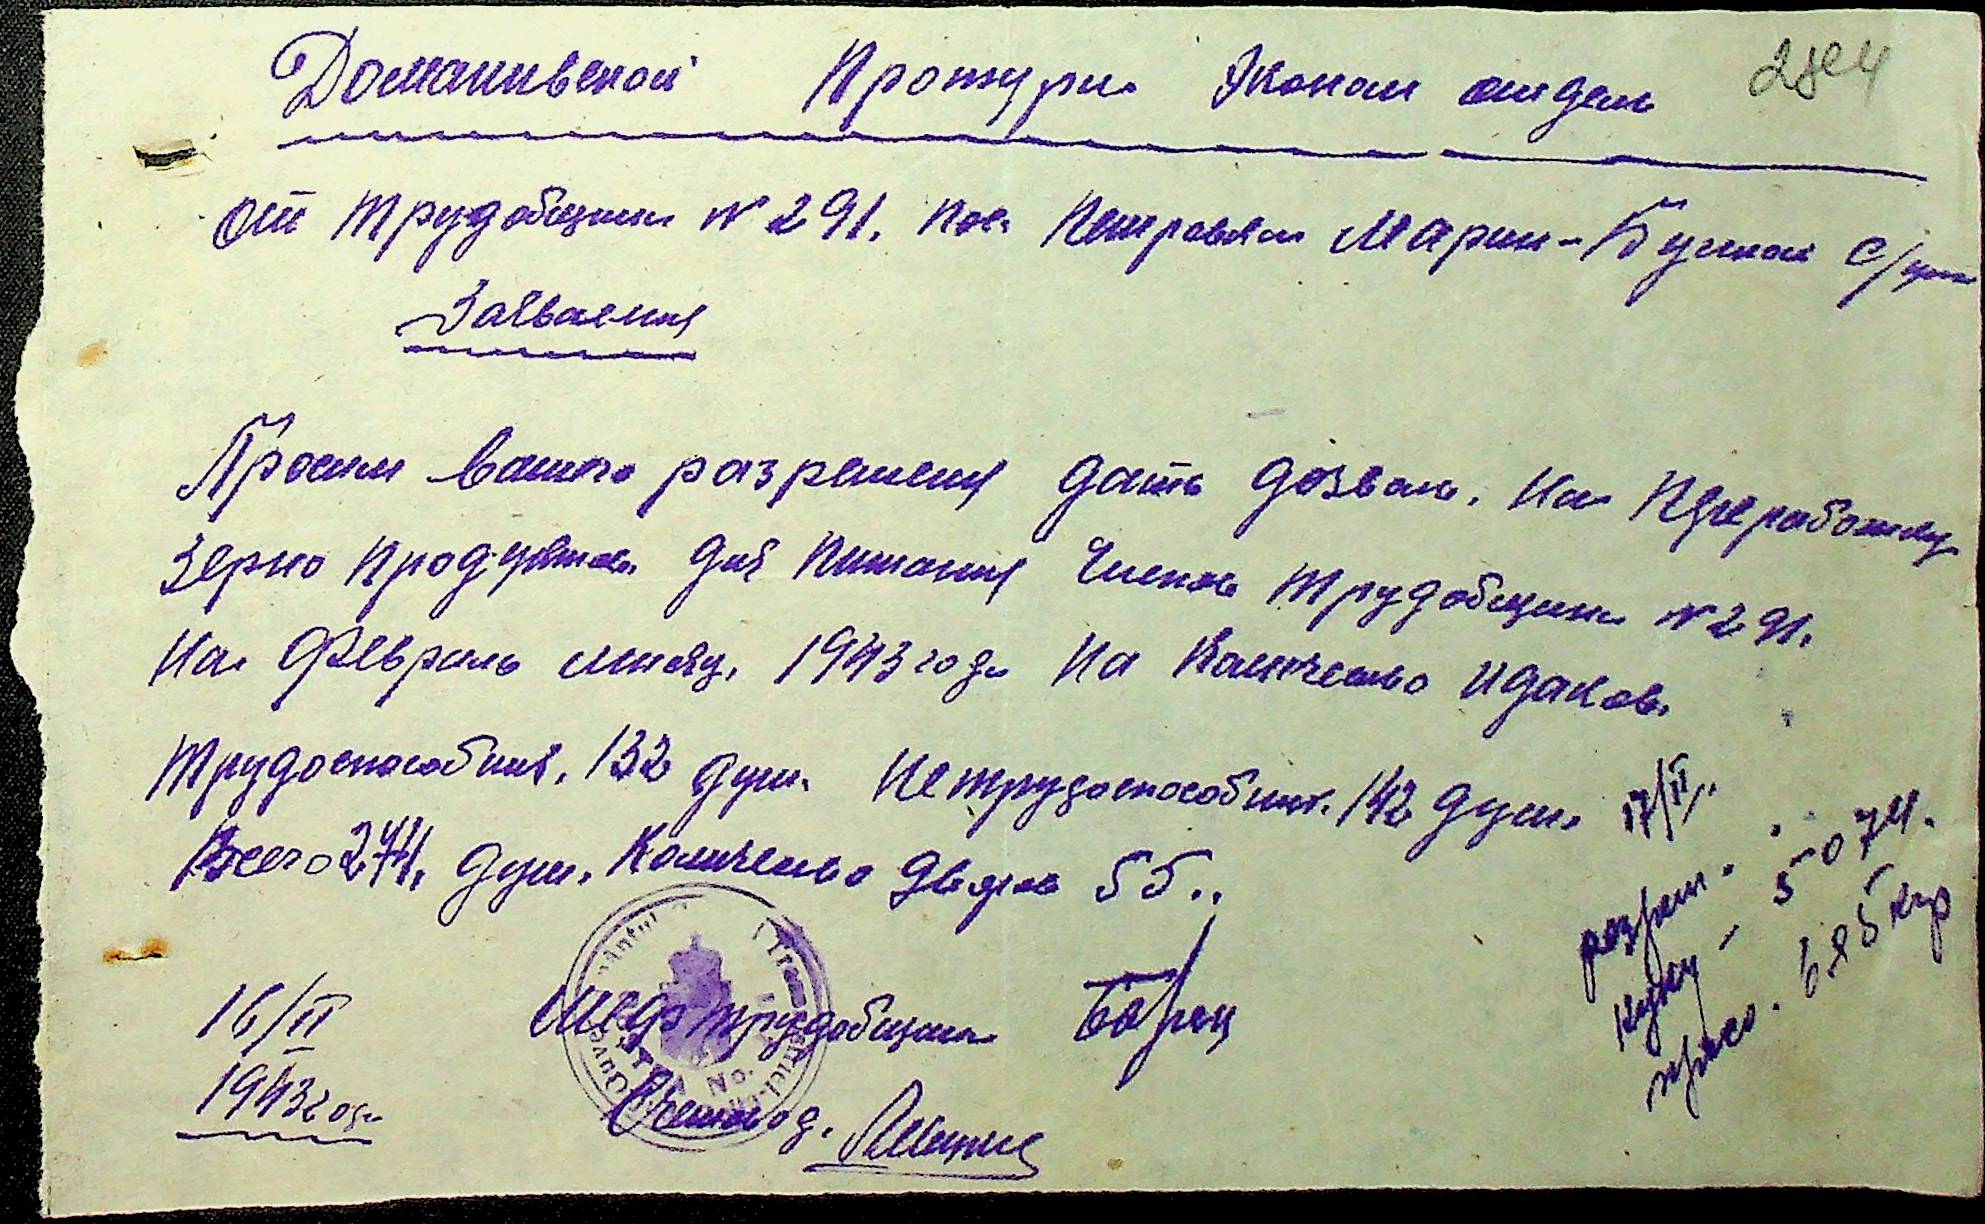 Доманивской Протури Эконом отдел
284
от Трудобщини № 291. пос. Петровка Марин-Буской с/упр
Заявления
Просим вашого разрешения дать дозвол. На Переработку
Зерно продуктов для Питания Членов Трудобщини № 291.
На Февраль месяц. 1943 года На Количество идаков.
Трудоспособних. 132 душ. Нетрудоспособних. 142 душ.
Всего 274. душ. Количество дворов 55..
17/II.
разреш.
куку – 50 пуд.
просо. 685 кгр
16/II
1943 года
Шеф трудобщини
Счетовод.
No.